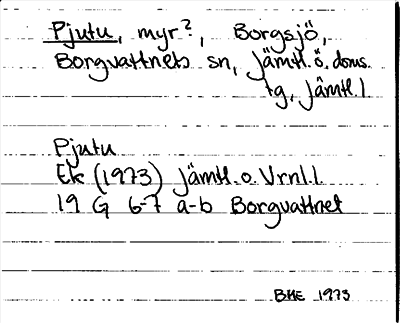 Pjutu, myr?, Borgsjö,
Borgvattnets sn, Jämtl. ö. doms.
tg, Jämtl. l.
Pjutu
Ek (1973) Jämtl. o. Vrnl. l.
19 G 6-7 a-b Borgvattnet
BHE 1973